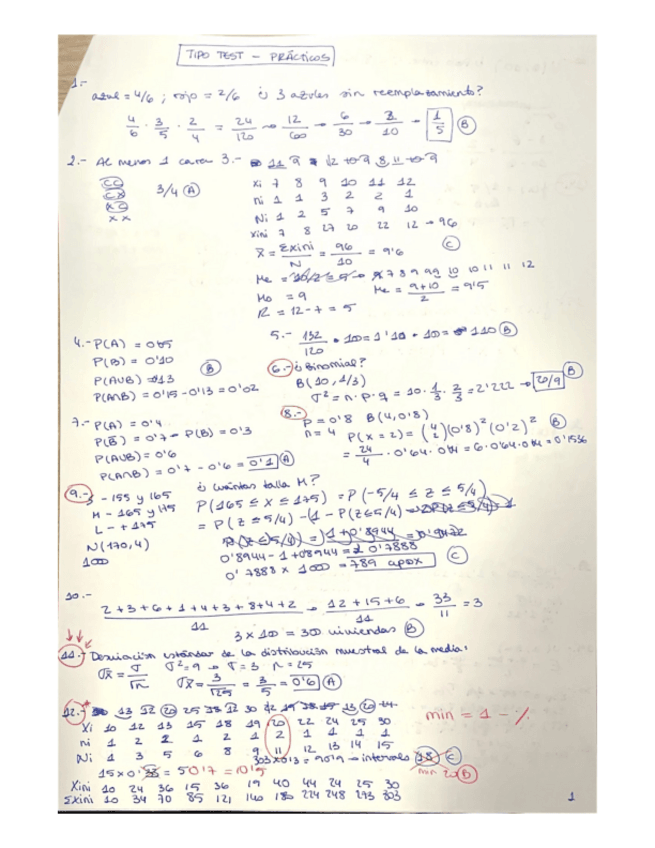 TIPO TEST - PRÁCTICOS
1.-
azul = 4/6 ; rojo = 2/6 ¿ 3 azules sin reemplazamiento?
4/6 · 3/5 · 2/4 = 24/120 → 12/60 → 6/30 → 2/10 → 1/5 B
2.- Al menos 1 cara
CC
CX
XC
XX
3/4 A
3.- 11 9 12 10 9 8, 11 10 9
xi 7 8 9 10 11 12
ni 1 1 3 2 2 1
Ni 1 2 5 7 9 10
xini 7 8 27 20 22 12 → 96
x̄ = Σxini/N = 96/10 = 9'6 C
Me = 10/2 = 5 → 7 8 9 9 9 10 10 11 11 12
Mo = 9
Me = 9+10/2 = 9'5
R = 12 - 7 = 5
4.- P(A) = 0'05
P(B) = 0'10
P(AUB) = 0'13
P(A∩B) = 0'15 - 0'13 = 0'02
B
5.- 132/120 · 100 = 1'10 · 100 = 110 B
6.- ¿Binomial?
B(10, 1/3)
σ² = n · p · q = 10 · 1/3 · 2/3 = 2'222 → 20/9 B
7.- P(A) = 0'4
P(B̄) = 0'7 → P(B) = 0'3
P(AUB) = 0'6
P(A∩B) = 0'7 - 0'6 = 0'1 A
8.-
P = 0'8 B(4, 0'8)
n = 4 P(x = 2) = (4 2) (0'8)² (0'2)² B
= 24/4 · 0'64 · 0'04 = 6 · 0'64 · 0'04 = 0'1536
9.- S - 155 y 165
M - 165 y 175
L - + 175
N(170, 4)
1000
¿ cuántos talla M?
P(165 ≤ x ≤ 175) = P(-5/4 ≤ z ≤ 5/4)
= P(z ≤ 5/4) - (1 - P(z ≤ 5/4)
0'8944 - 1 + 0'8944 = 0'7888
0'7888 x 1000 = 789 apox C
10.-
2+3+6+1+4+3+8+4+2/11 → 12+15+6/11 → 33/11 = 3
3 x 100 = 300 viviendas B
11.- Desviación estándar de la distribución muestral de la media:
σx̄ = σ/√n σ² = 9 → σ = 3 n = 25
σx̄ = 3/√25 = 3/5 = 0'6 A
12.- 13 12 20 25 18 12 30 12 19 18 15 13 20 24
Xi 10 12 13 15 18 19 20 22 24 25 30
ni 1 2 2 1 2 1 2 1 1 1 1
Ni 1 3 5 6 8 9 11 12 13 14 15
min = 1 - %
303 x 0'3 = 90'9 → intervalo 18 C
15 x 0' = 50'7 = 10'5
min 20 B
Xini 10 24 36 15 36 19 40 44 24 25 30
Σxini 10 34 70 85 121 140 180 224 248 273 303
1